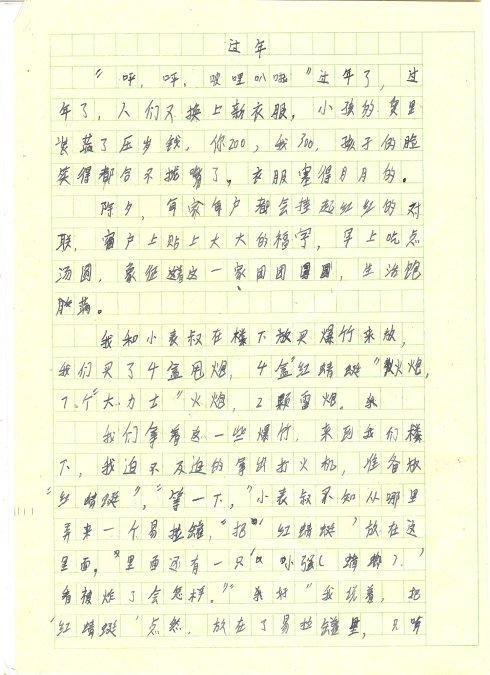 过年
“呯，呯，噼哩叭啦”过年了，过
年了，人们又换上新衣服。小孩的袋里
装满了压岁钱，你200，我300，孩子的脸
笑得都合不拢嘴了。衣服塞得月月的。
除夕，每家每户都会挂起红红的对
联，窗户上贴上大大的福字，早上吃点
汤圆，象征着这一家团团圆圆，生活饱
满。
我和小表叔在楼下放买爆竹来放，
我们买了4盒甩炮，4盒“红蜻蜓”火炮，
7个“大力士”火炮，2颗雷炮。
我们拿着这一些爆竹，来到我们楼
下，我迫不及迫的拿出打火机，准备放
“红蜻蜓”，“等一下，”小表叔不知从哪里
弄来一个易拉罐，“把‘红蜻蜓’放在这
里面，”里面还有一只“小强（蟑螂）.’
看被炸了会怎样。”“来好”我说着，把
‘红蜻蜓’点然，放在了易拉罐里，只听